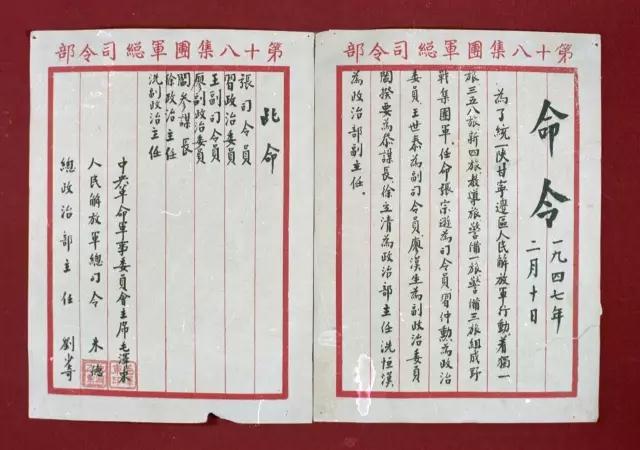 第十八集團軍總司令部
命令
一九四七年
二月十日
為了統一陝甘寧邊區人民解放軍行動，着獨一
旅三五八旅新四旅教導旅警備一旅警備三旅組成野
戰集團軍任命張宗遜為司令員，習仲勳為政治
委員，王世泰為副司令員，廖漢生為副政治委員
閻揆要為參謀長，徐立清為政治部主任，冼恒漢
為政治部副主任。
第十八集團軍總司令部
此命
張司令員
習政治委員
王副司令員
廖副政治委員
閻參謀長
徐政治主任
冼副政治主任
中央革命軍事委員會主席毛澤東
人民解放軍總司令 朱德
總政治部主任 劉少奇